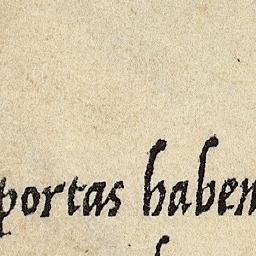 portas haben